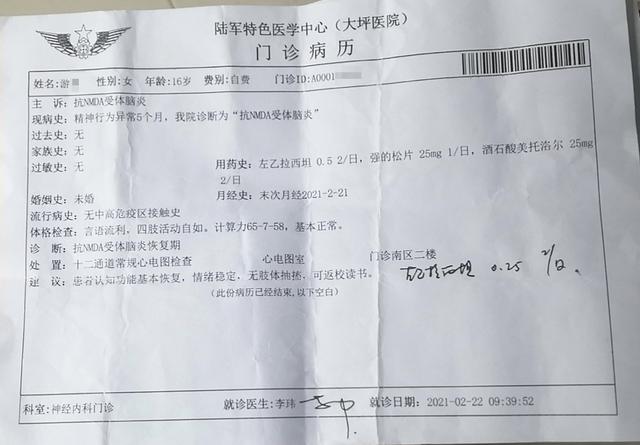 陆军特色医学中心（大坪医院）
门诊病历
姓名:游 性别:女 年龄:16岁 费别:自费 门诊ID:A0001
主 诉: 抗NMDA受体脑炎
现病史: 精神行为异常5个月，我院诊断为“抗NMDA受体脑炎”
过去史: 无
家族史: 无
过敏史: 无 用药史: 左乙拉西坦 0.5 2/日，强的松片 25mg 1/日，酒石酸美托洛尔 25mg
2/日
婚姻史: 未婚 月经史: 末次月经2021-2-21
流行病史: 无中高危疫区接触史
体格检查: 言语流利，四肢活动自如。计算力65-7-58，基本正常。
诊 断: 抗NMDA受体脑炎恢复期
处 置: 十二通道常规心电图检查 心电图室 门诊南区二楼
建 议: 患者认知功能基本恢复，情绪稳定，无肢体抽搐，可返校读书。
左乙拉西坦 0.25 2/日.
(此份病历已经结束,以下空白)
科室:神经内科门诊 就诊医生:李玮 就诊日期: 2021-02-22 09:39:52